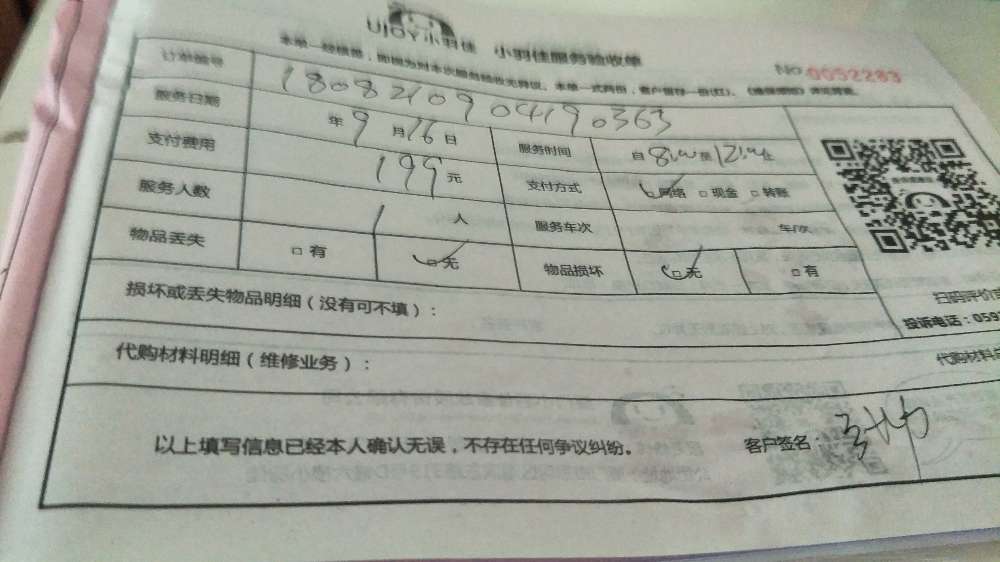 UJOY小羽佳 小羽佳服务验收单
本单一经填写,即视为对本次服务验收无异议。本单一式两份,客户留存一份(红)。
NO 0052283
订单编号 180821090419 0363
服务日期 年9月16日 服务时间 自8:00至12:00止
支付费用 199元 支付方式 网络 现金 转账
服务人数 1人 服务车次 车/次
物品丢失 有 无 物品损坏 无 有
损坏或丢失物品明细(没有可不填):
扫码评价
投诉电话:059
代购材料明细(维修业务):
代购材料
以上填写信息已经本人确认无误,不存在任何争议纠纷。 客户签名: